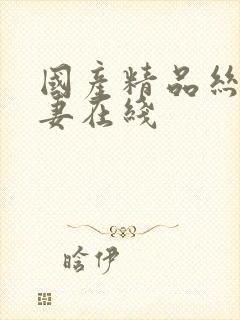 國產精品絲
妻在綫
晗伊